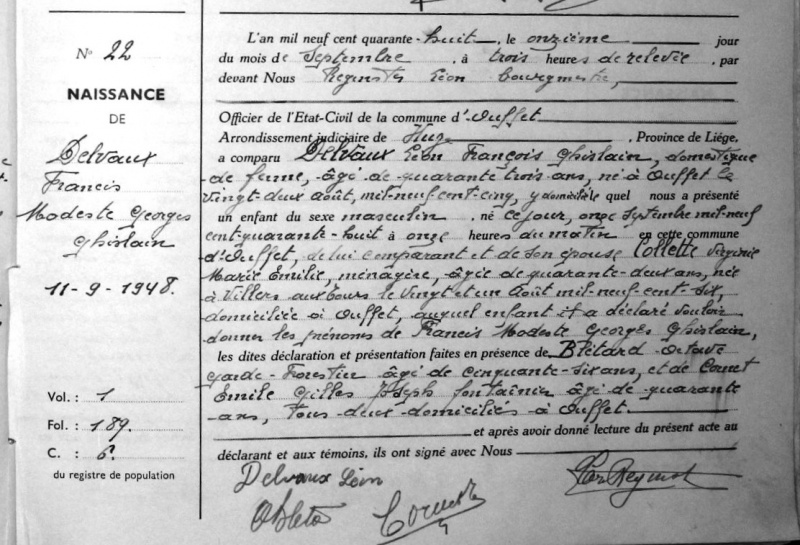 N° 22
NAISSANCE
DE
Delvaux
Francis
Modeste Georges
Ghislain
11-9-1948.
Vol. : 1
Fol. : 189.
C. : 6.
du registre de population
L'an mil neuf cent quarante-huit, le onzième jour
du mois de Septembre, à trois heures de relevée, par
devant Nous Léon Bourgmestre,
Officier de l'Etat-Civil de la commune d'Ouffet
Arrondissement judiciaire de Huy, Province de Liége,
a comparu Delvaux Léon François Ghislain, domestique
de ferme, âgé de quarante trois ans, né à Ouffet le
vingt-deux août, mil-neuf-cent-cinq, y domicilié lequel nous a présenté
un enfant du sexe masculin, né ce jour, onze septembre mil-neuf
cent-quarante-huit à onze heures du matin en cette commune
d'Ouffet, de lui comparant et de son épouse Collette Virginie
Marie Emilie, ménagère, âgée de quarante-deux ans, née
à Villers aux Tours le vingt et un Août mil-neuf-cent-six,
domiciliée à Ouffet, auquel enfant il a déclaré vouloir
donner les prénoms de Francis Modeste Georges Ghislain,
les dites déclaration et présentation faites en présence de Blétard Octave
garde-Forestier âgé de cinquante-six ans, et de Cornet
Emile Gilles Joseph fontainier âgé de quarante
ans, tous-deux-domiciliés à Ouffet.
et après avoir donné lecture du présent acte au
déclarant et aux témoins, ils ont signé avec Nous
Delvaux Léon